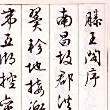 滕王閣序
南昌故郡洪
翼軫地接衡
帶五湖控蠻